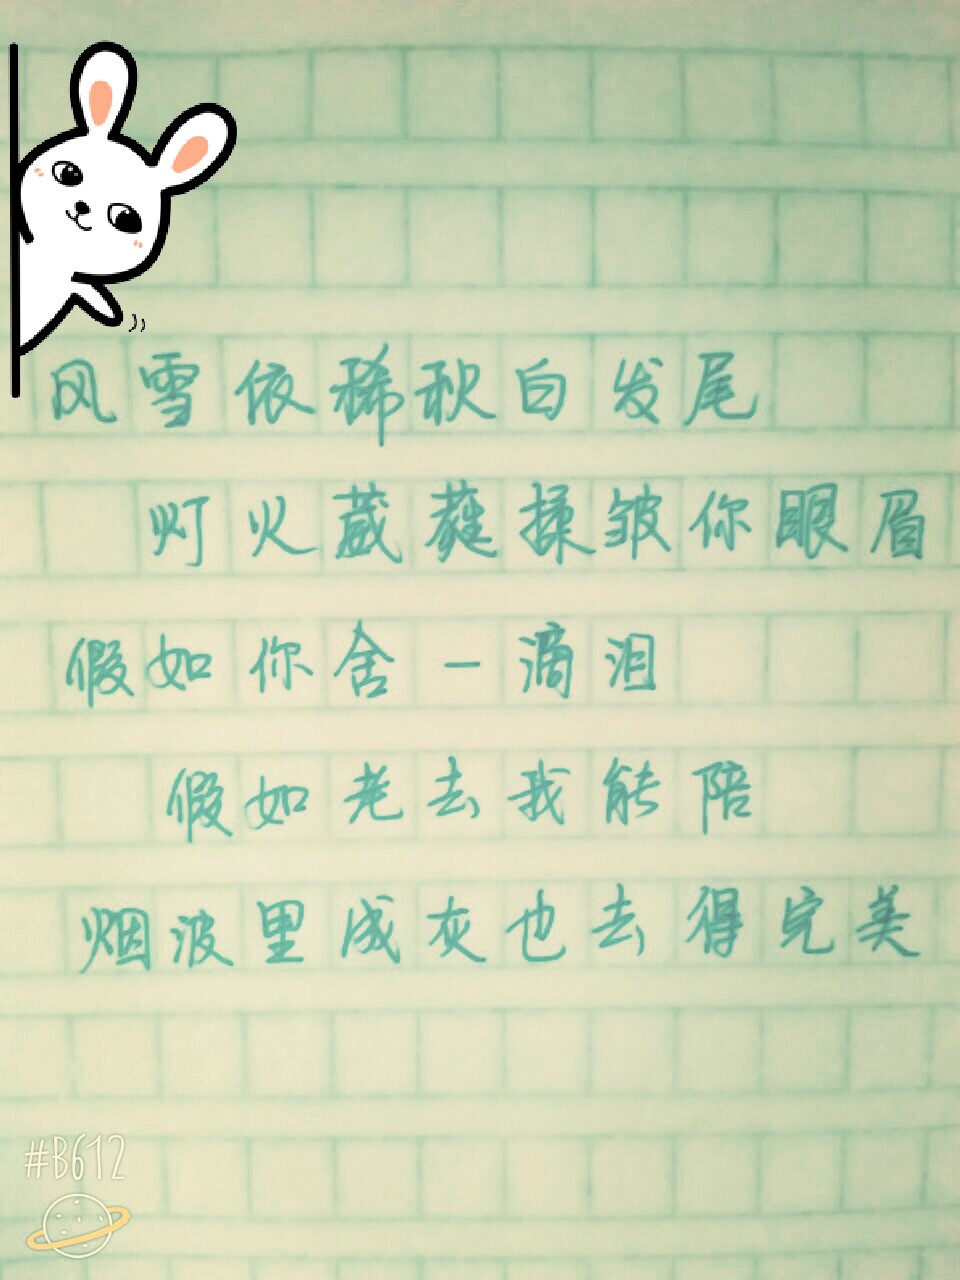 风雪依稀秋白发尾
灯火葳蕤揉皱你眼眉
假如你舍一滴泪
假如老去我能陪
烟波里成灰也去得完美
#B612